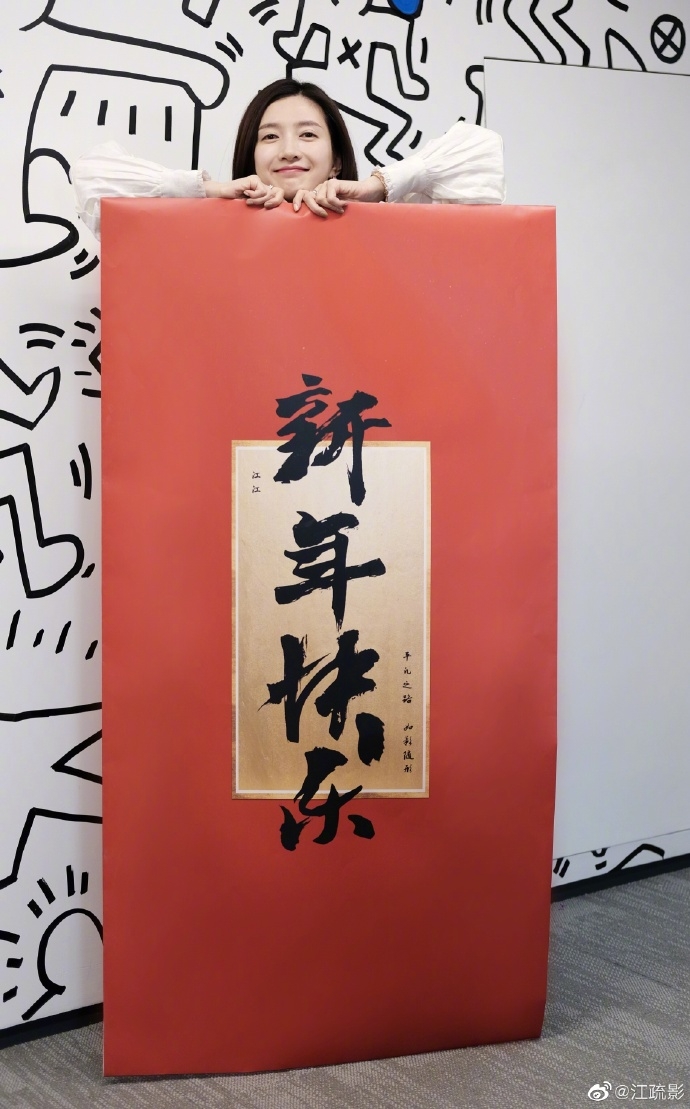 新年快乐
江江
平凡之路 如影随形
@江疏影